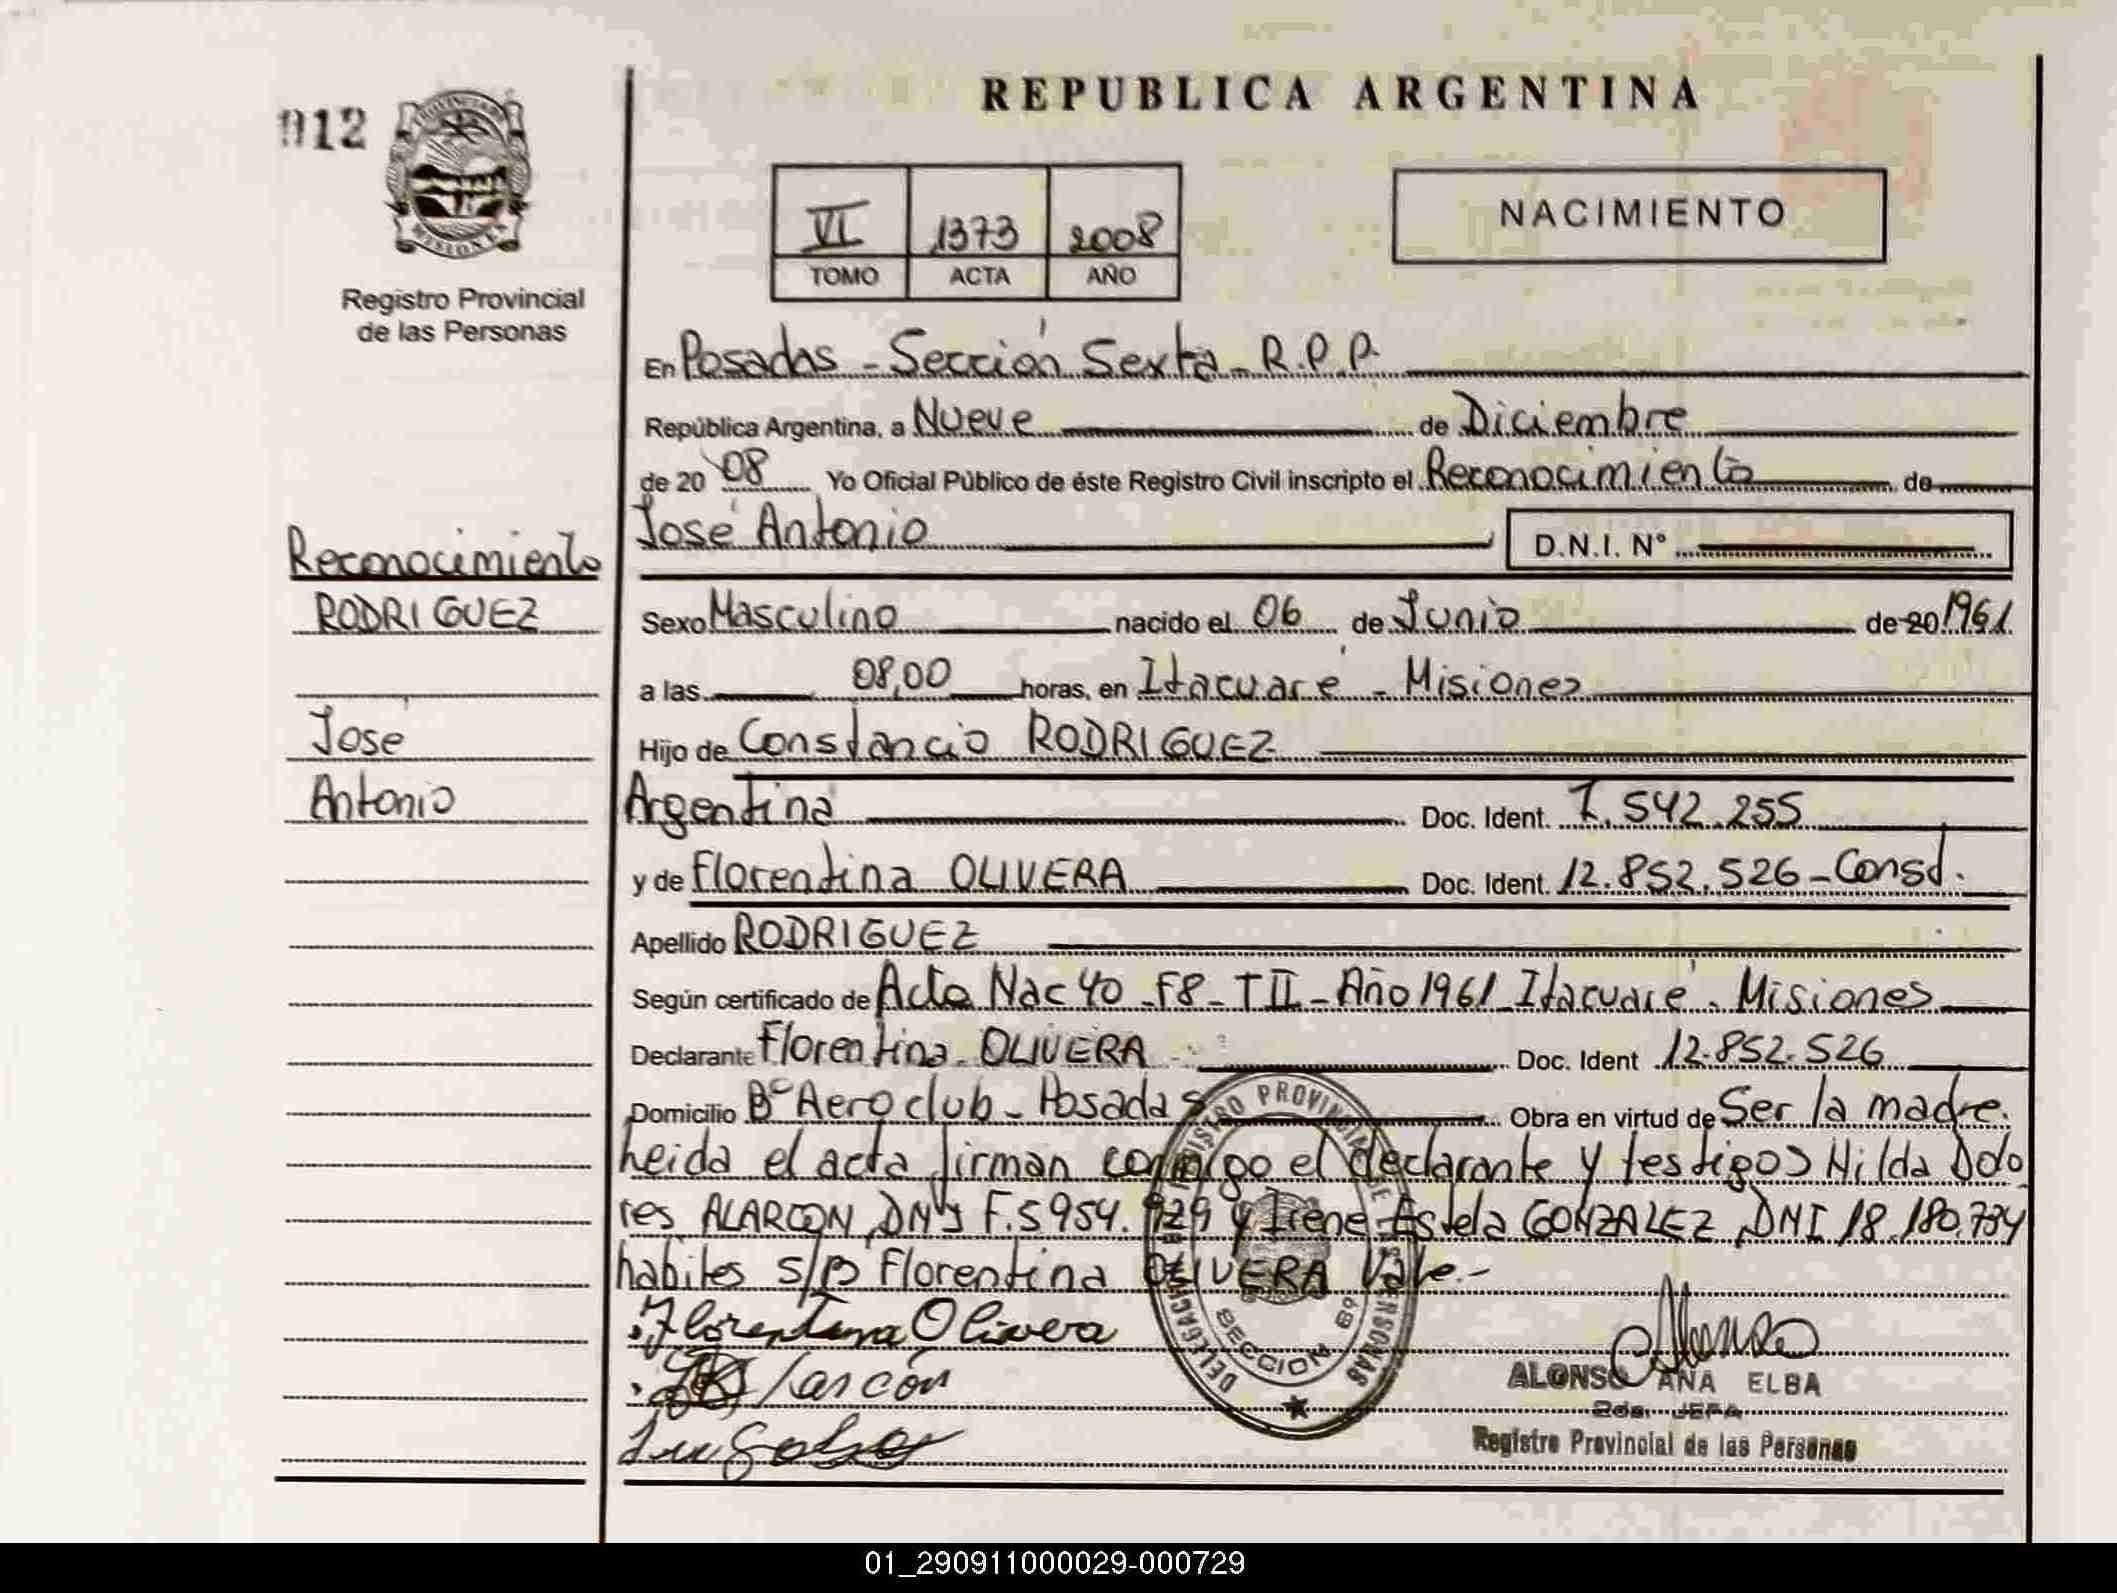 012
PROVINCIA DE
MISIONES
Registro Provincial
de las Personas
REPUBLICA ARGENTINA
VI 1373 2008
TOMO ACTA AÑO
NACIMIENTO
En Posadas - Sección Sexta - R.P.P.
República Argentina, a Nueve de Diciembre
de 20 08 Yo Oficial Público de éste Registro Civil inscripto el Reconocimiento de
José Antonio D.N.I. Nº
Reconocimiento
RODRIGUEZ
José
Antonio
Sexo Masculino nacido el 06 de Junio de 20 1961
a las 08,00 horas, en Itacuaré - Misiones
Hijo de Constancio RODRIGUEZ
Argentina Doc. Ident. 7.542.255
y de Florentina OLIVERA Doc. Ident. 12.852.526 - Const.
Apellido RODRIGUEZ
Según certificado de Acta Nac 40 - F8 - T II - Año 1961 Itacuaré - Misiones
Declarante Florentina OLIVERA Doc. Ident 12.852.526
Domicilio Bº Aeroclub - Posadas Obra en virtud de Ser la madre.
heida el acta firman conmigo el declarante y testigos Hilda Dolo
res ALARCON, DNI F.5954.929 y Irene Estela GONZALEZ, DNI 18.180.734
habiles S/B Florentina OLIVERA Vale.-
Florentina Olivera
Alarcón
REGISTRO PROVINCIAL DE LAS PERSONAS
DELEGACION
SECCION 6ª
ALONSO ANA ELBA
2da. JEFA
Registro Provincial de las Personas
01_290911000029-000729